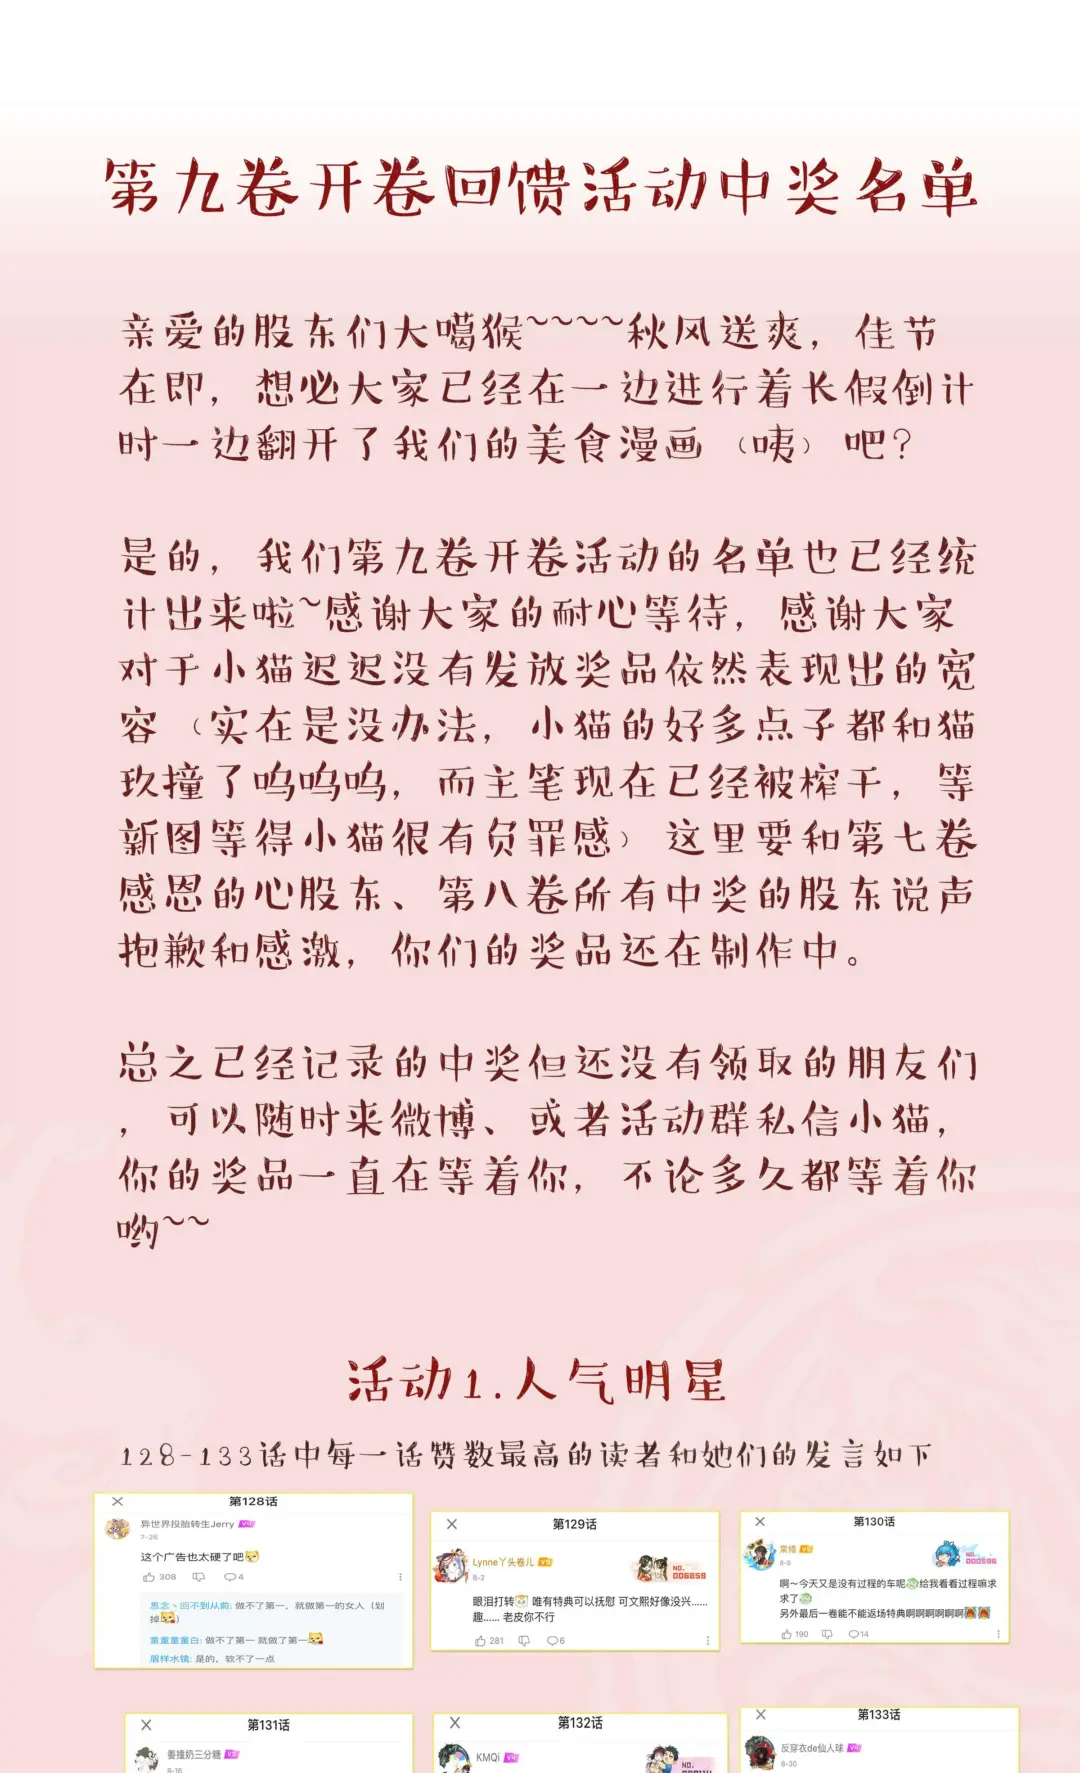 第九卷开卷回馈活动中奖名单
亲爱的股东们大噶猴~~~~秋风送爽，佳节
在即，想必大家已经在一边进行着长假倒计
时一边翻开了我们的美食漫画（咦）吧？
是的，我们第九卷开卷活动的名单也已经统
计出来啦~感谢大家的耐心等待，感谢大家
对于小猫迟迟没有发放奖品依然表现出的宽
容（实在是没办法，小猫的好多点子都和猫
玖撞了呜呜呜，而主笔现在已经被榨干，等
新图等得小猫很有负罪感）这里要和第七卷
感恩的心股东、第八卷所有中奖的股东说声
抱歉和感激，你们的奖品还在制作中。
总之已经记录的中奖但还没有领取的朋友们
，可以随时来微博、或者活动群私信小猫，
你的奖品一直在等着你，不论多久都等着你
哟~~
活动1.人气明星
128-133话中每一话赞数最高的读者和她们的发言如下
第128话
异世界投胎转生Jerry
7-26
这个广告也太硬了吧
308 4
思念丶回不到从前: 做不了第一，就做第一的女人（划
掉
童童童童白: 做不了第一 就做了第一
眉样水镜: 是的，软不了一点
第129话
Lynne丫头卷儿
8-2
NO.
006859
眼泪打转 唯有特典可以抚慰 可文熙好像没兴……
趣…… 老皮你不行
281 6
第130话
8-9
NO.
000596
啊～今天又是没有过程的车呢 给我看看过程嘛求
求了
另外最后一卷能不能返场特典啊啊啊啊啊啊
190 14
第131话
姜撞奶三分糖
8-16
第132话
KMQi
NO.
第133话
反穿衣de仙人球
8-30